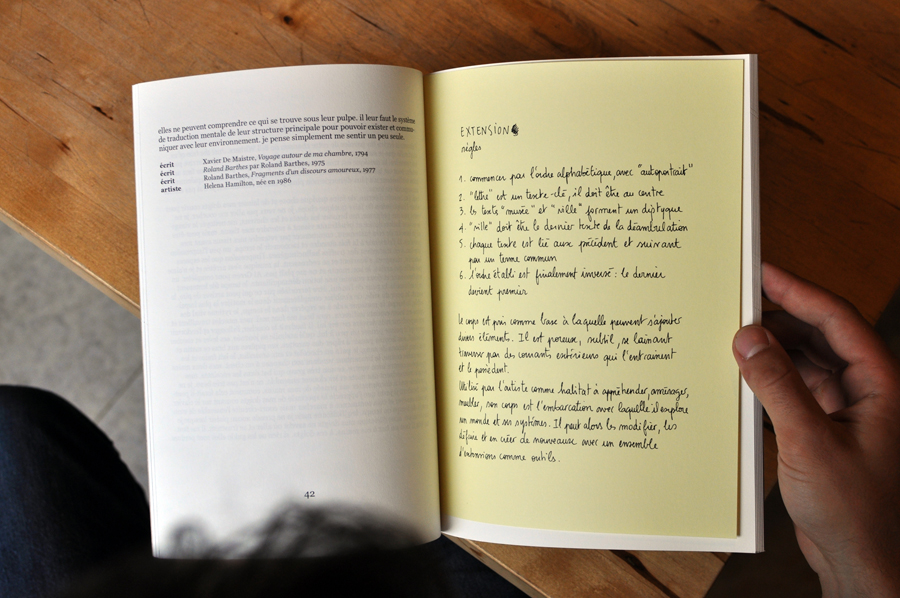 elles ne peuvent comprendre ce qui se trouve sous leur pulpe. il leur faut le système
de traduction mentale de leur structure principale pour pouvoir exister et commu-
niquer avec leur environnement. je pense simplement me sentir un peu seule.
écrit Xavier De Maistre, Voyage autour de ma chambre, 1794
écrit Roland Barthes par Roland Barthes, 1975
écrit Roland Barthes, Fragments d'un discours amoureux, 1977
artiste Helena Hamilton, née en 1986
42
EXTENSION
règles
1. commencer par l'ordre alphabétique, avec "autoportrait"
2. "lettre" est un texte-clé, il doit être au centre
3. les textes "musée" et "ville" forment un diptyque
4. "ville" doit être le dernier texte de la déambulation
5. chaque texte est lié aux précédent et suivant
par un terme commun
6. l'ordre établi est finalement inversé : le dernier
devient premier
Le corps est pris comme base à laquelle peuvent s'ajouter
divers éléments. Il est poreux, subtil, se laissant
traverser par des courants extérieurs qui l'entraînent
et le possèdent.
Utilisé par l'artiste comme habitat à appréhender, aménager,
meubler, son corps est l'embarcation avec laquelle il explore
son monde et ses systèmes. Il peut alors les modifier, les
défaire et en créer de nouveaux avec un ensemble
d'extensions comme outils.